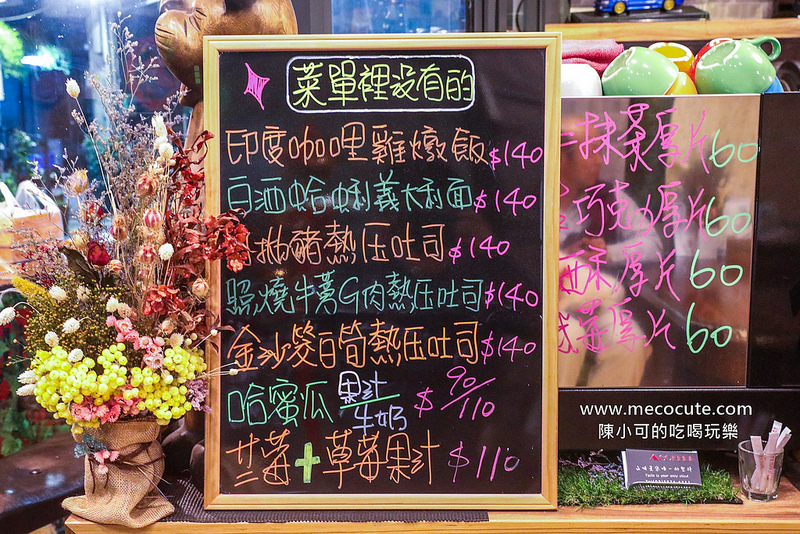 菜單裡沒有的
印度咖哩雞燉飯$140
白酒蛤蜊義大利面$140
抽豬熱压吐司$140
照燒牛蒡G肉熱压吐司$140
金沙筊白筍熱压吐司$140
哈蜜瓜果汁/牛奶$90/110
艹莓+草莓果汁$110
抹茶厚片60
巧克力厚片60
酥厚片60
菜厚片60
www.mecocute.com
陳小可的吃喝玩樂